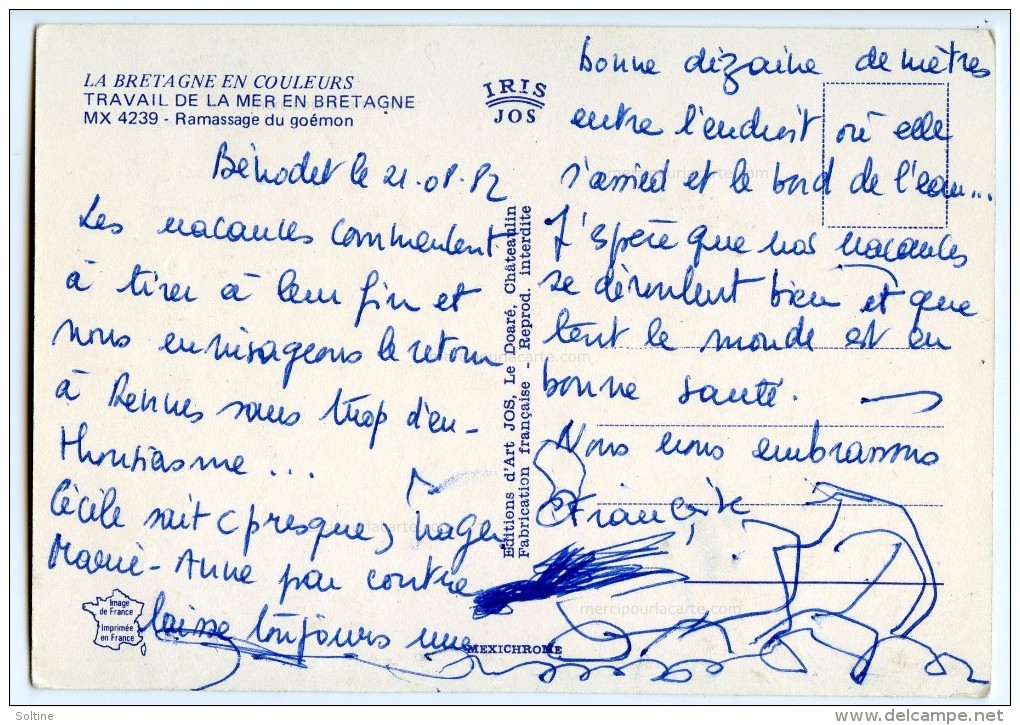 LA BRETAGNE EN COULEURS
TRAVAIL DE LA MER EN BRETAGNE
MX 4239 - Ramassage du goémon
IRIS
JOS
Bénodet le 21.08.82
Les vacances commencent
à tirer à leur fin et
nous envisageons le retour
à Rennes sans trop d'en-
thousiasme...
Cécile sait (presque) nager
Marie-Anne par contre
laisse toujours une
bonne dizaine de mètres
entre l'endroit où elle
s'assied et le bord de l'eau...
J'espère que vos vacances
se déroulent bien et que
tout le monde est en
bonne santé.
Nous vous embrassons
Françoise
Editions d'Art JOS, Le Doaré, Châteaulin
Fabrication française - Reprod. interdite
Image
de France
Imprimée
en France
MEXICHROME
mercipourlacarte.com
mercipourlacarte.com
mercipourlacarte.com
mercipourlacarte.com
Soltine
delcampe.net